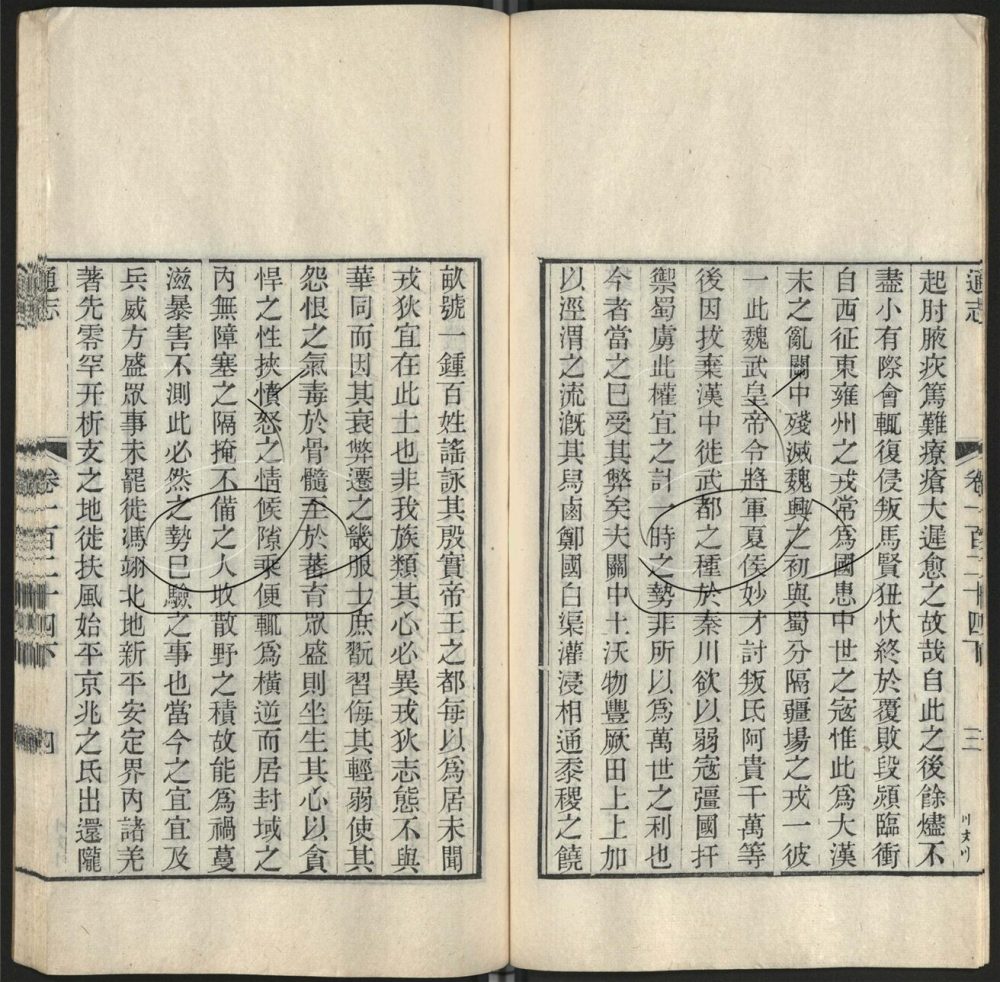 通志
卷一百二十四下
三
起肘腋疢篤難療瘡大遲愈之故哉自此之後餘燼不
盡小有際會輒復侵叛馬賢狃忕終於覆敗段熲臨衝
自西征東雍州之戎常爲國患中世之寇惟此爲大漢
末之亂關中殘滅魏興之初與蜀分隔疆場之戎一彼
一此魏武皇帝令將軍夏侯妙才討叛氐阿貴千萬等
後因拔棄漢中徙武都之種於秦川欲以弱寇彊國扞
禦蜀虜此權宜之計一時之勢非所以爲萬世之利也
今者當之已受其弊矣夫關中土沃物豐厥田上上加
以涇渭之流漑其舄鹵鄭國白渠灌浸相通黍稷之饒
畝號一鍾百姓謠詠其殷實帝王之都每以爲居未聞
戎狄宜在此土也非我族類其心必異戎狄志態不與
華同而因其衰弊遷之畿服士庶翫習侮其輕弱使其
怨恨之氣毒於骨髓至於蕃育眾盛則坐生其心以貪
悍之性挾憤怒之情候隙乘便輒爲橫逆而居封域之
內無障塞之隔掩不備之人收散野之積故能爲禍蔓
滋暴害不測此必然之勢已驗之事也當今之宜宜及
兵威方盛眾事未罷徙馮翊北地新平安定界內諸羌
著先零罕幵析支之地徙扶風始平京兆之氐出還隴
通志
卷一百二十四下
四